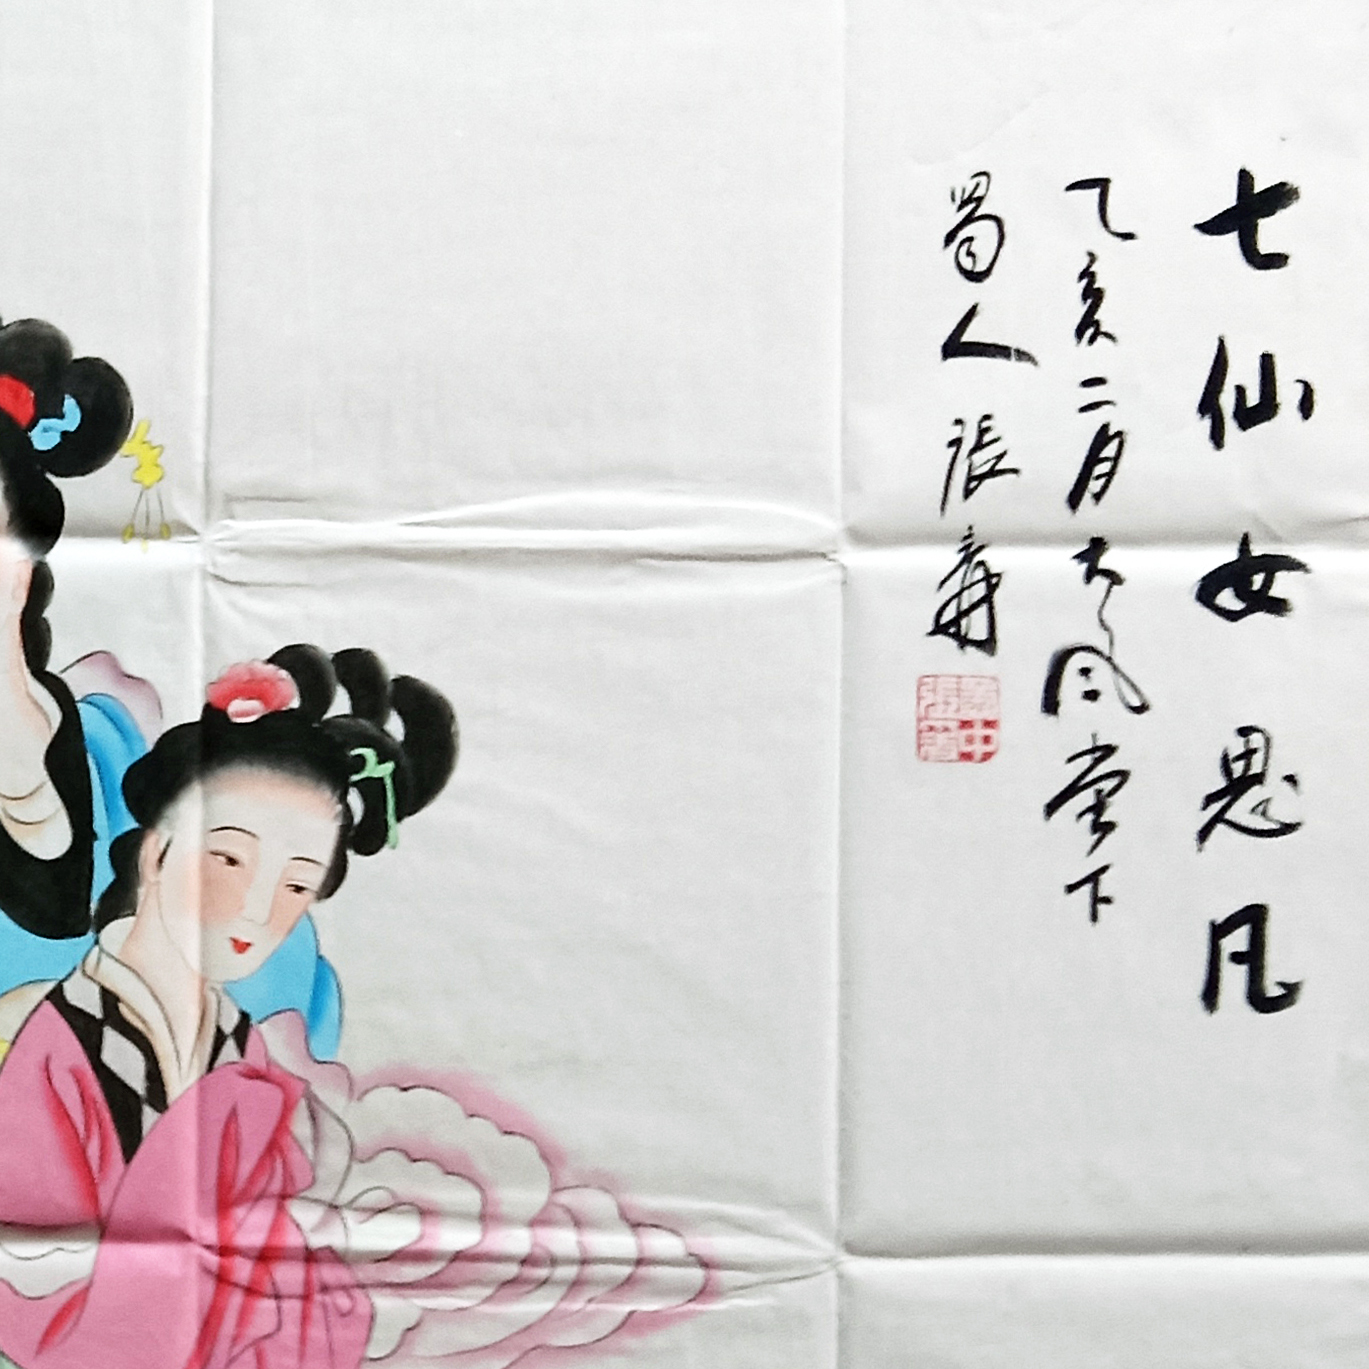 七仙女思凡
乙亥二月大风堂下
蜀人張壽